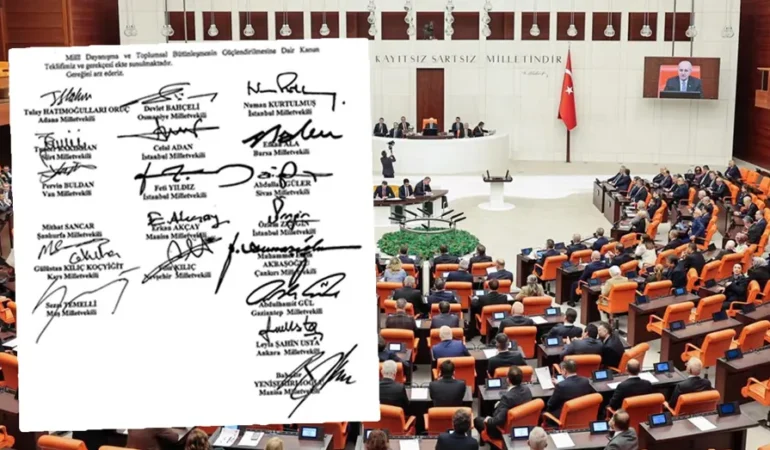 KAYITSIZ ŞARTSIZ MİLLETİNDİR
Millî Dayanışma ve Toplumsal Bütünleşmenin Güçlendirilmesine Dair Kanun
Teklifimiz ve gerekçesi ekte sunulmaktadır.
Gereğini arz ederiz.
Tulay HATIMOĞULLARI ORUÇ
Adana Milletvekili
BAKIRHAN
Siirt Milletvekili
Pervin BULDAN
Van Milletvekili
Mithat SANCAR
Şanlıurfa Milletvekili
Gülistan KILIÇ KOÇYİĞİT
Kars Milletvekili
Sezai TEMELLİ
Muş Milletvekili
Devlet BAHÇELİ
Osmaniye Milletvekili
Celal ADAN
İstanbul Milletvekili
Feti YILDIZ
İstanbul Milletvekili
Erkan AKÇAY
Manisa Milletvekili
KILIÇ
Nevşehir Milletvekili
Numan KURTULMUŞ
İstanbul Milletvekili
ALA
Bursa Milletvekili
Abdullah GÜLER
Sivas Milletvekili
Özlem ZENGİN
İstanbul Milletvekili
Muhammet
AKBAŞOĞLU
Çankırı Milletvekili
Abdulhamit GÜL
Gaziantep Milletvekili
Leyla ŞAHİN USTA
Ankara Milletvekili
Bahadır
YENİŞEHİRLİOĞLU
Manisa Milletvekili